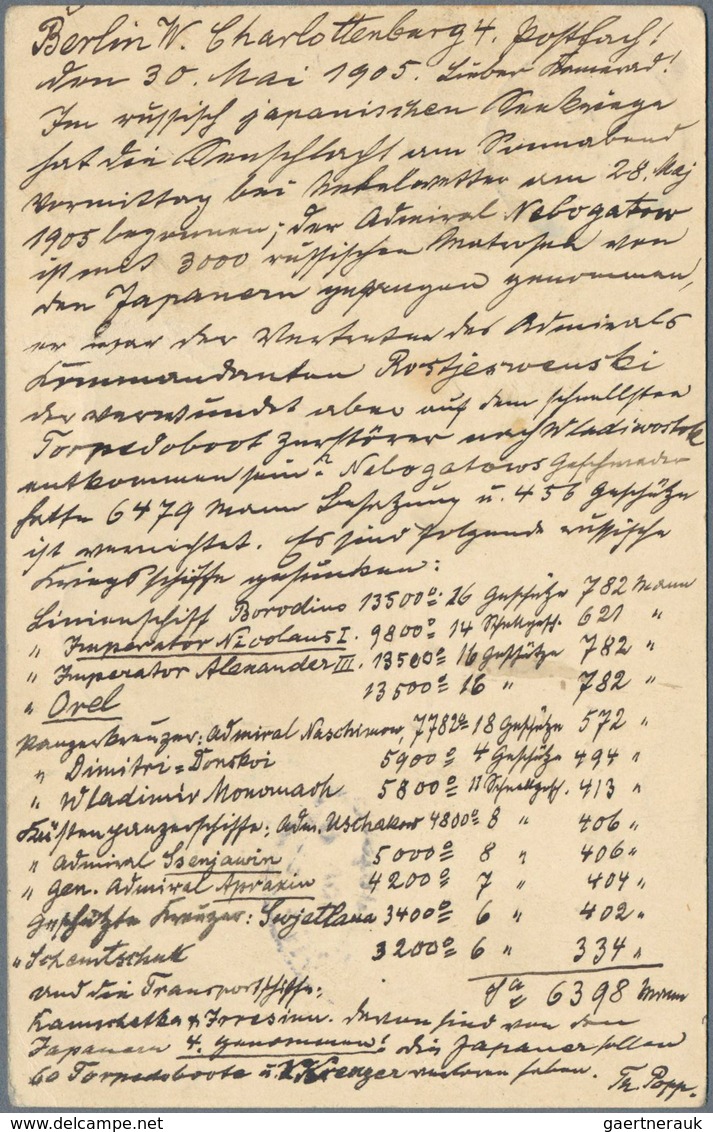 Berlin W. Charlottenburg 4. Postfach!
den 30. Mai 1905. Lieber Kamerad!
Im russisch japanischen Seekriege
hat die Seeschlacht am Sonnabend
Vormittag bei Nebelwetter am 28. Maj
1905 begonnen; der Admiral Nebogatow
ist mit 3000 russischen Matrosen von
den Japanern gefangen genommen,
er war der Vertreter des Admirals
Kommandanten Rostjeswenski
der verwundet aber auf dem schnellsten
Torpedoboot Zerstörer nach Wladiwostok
entkommen sein? Nebogatows Geschwader
hatte 6479 Mann Besatzung u. 456 Geschütze
ist vernichtet. Es sind folgende russische
Kriegsschiffe gesunken:
Linienschiff Borodino 13500 16 Geschütze 782 Mann
" Imperator Nicolaus I. 9800 14 Schnellgesch. 621 "
" Imperator Alexander III. 13500 16 Geschütze 782 "
" Orel 13500 16 " 782 "
Panzerkreuzer: Admiral Naschimow 7782 18 Geschütze 572 "
" Dimitri=Donskoi 5900 4 Geschütze 494 "
" Wladimir Monomach 5800 11 Schnellgesch. 413 "
Küstenpanzerschiffe: Adm. Uschakow 4800 8 " 406 "
" Admiral Ssenjawin 5000 8 " 406 "
" Gen. Admiral Apraxin 4200 7 " 404 "
Geschützte Kreuzer: Swjetlana 3400 6 " 402 "
" Schemtschuk 3200 6 " 334 "
und die Transportschiffe: Sa 6398 Mann
Kamschatka & Irresinn. davon sind von den
Japanern 4. genommen! die Japaner sollen
60 Torpedoboote u. Kreuzer verloren haben. Th. Popp.
gaertnerauk